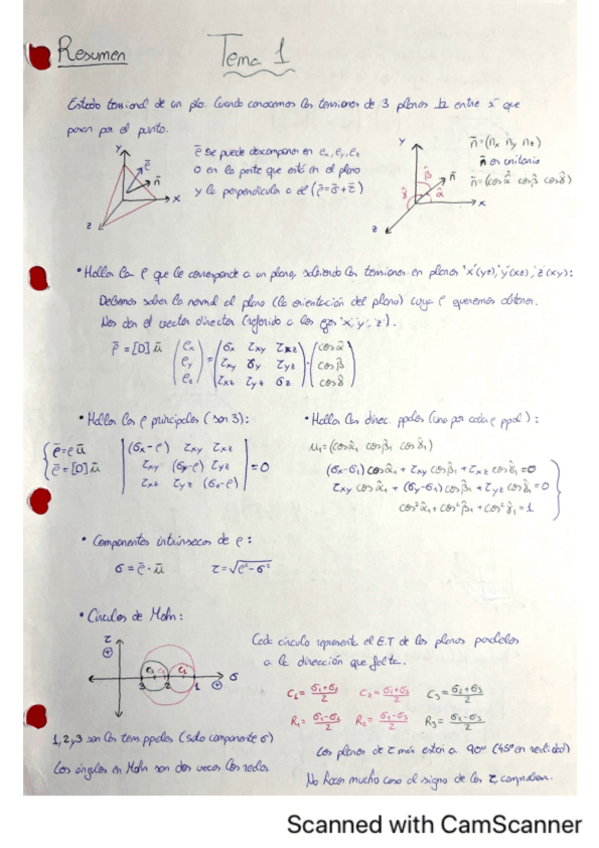 Resumen
Tema 1
Estado tensional de un pto. Cuando conocemos las tensiones de 3 planos ⊥ entre sí que
pasan por el punto.
ē se puede descomponer en ex, ey, ez
o en la parte que está en el plano
y la perpendicular a el (ρ̄=σ̄+τ̄)
Y
X
Z
ē
n̄
Y
X
Z
n̄
α̂
β̂
γ̂
n̄=(nx ny nz)
n̄ en unitario
n̄=(cosα̂ cosβ̂ cosγ̂)
• Hallar la ρ que le corresponde a un plano, sabiendo las tensiones en planos 'x'(yz), 'y'(xz), 'z'(xy):
Debemos saber la normal al plano (la orientación del plano) cuya ρ queremos obtener.
Nos dan el vector director (referido a los ejes 'x', 'y', 'z').
ρ̄=[D]ū (ρx ρy ρz) = (σx τxy τxz
τxy σy τyz
τxz τyz σz) · (cosα̂ cosβ̂ cosγ̂)
• Hallar las ρ principales (son 3):
{ρ̄=ρū
ρ̄=[D]ū
|(σx-ρ) τxy τxz
τxy (σy-ρ) τyz
τxz τyz (σz-ρ)| =0
• Hallar las direc. ppales (una por cada ρ ppal):
μ1=(cosα̂1 cosβ̂1 cosγ̂1)
(σx-σ1)cosα̂1+τxy cosβ̂1+τxz cosγ̂1=0
τxy cosα̂1+(σy-σ1)cosβ̂1+τyz cosγ̂1=0
cos²α̂1+cos²β̂1+cos²γ̂1=1
• Componentes intrínsecas de ρ:
σ=ρ̄·ū τ=√ρ²-σ²
• Círculos de Mohr:
τ
σ
C3
C2
C1
3 2 1
Cada círculo representa el E.T de los planos paralelos
a la dirección que falta.
C2=σ1+σ3/2 C3=σ2+σ3/2
R1=σ2-σ3/2 R2=σ1-σ3/2
1,2,3 son las tens. ppales (solo componente σ)
Los ángulos en Mohr son dos veces los reales
Los planos de τ máx están a 90º (45º en realidad)
No hacer mucho caso al signo de las τ, comprobar.
Scanned with CamScanner